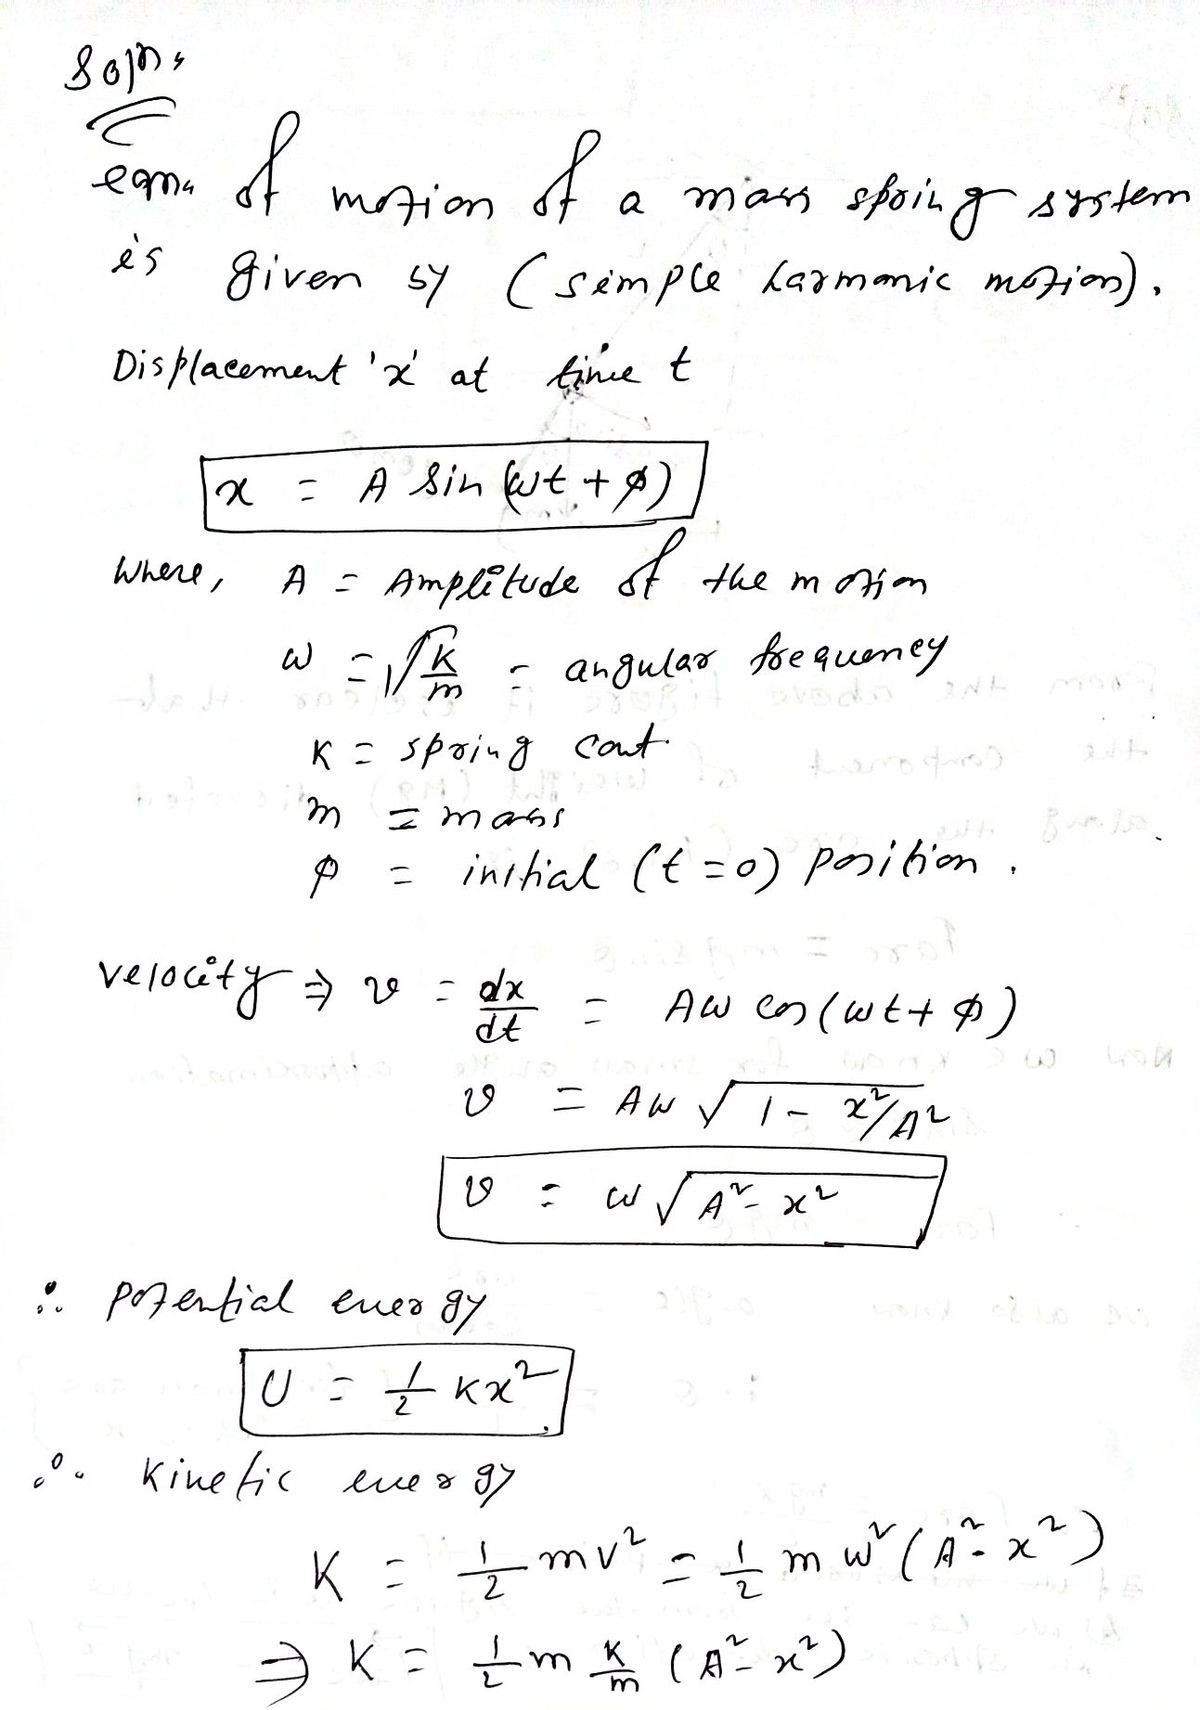 Soln,
eqn. of motion of a mass spring system
is given by (simple harmonic motion).
Displacement 'x' at time t
x = A sin (ωt + φ)
Where, A = Amplitude of the motion
ω = √(K/m) = angular frequency
K = spring cont.
m = mass
φ = initial (t=0) position.
velocity ⇒ v = dx/dt = Aω cos(ωt + φ)
v = Aω √(1 - x²/A²)
v = ω √(A² - x²)
∴ Potential energy
U = 1/2 Kx²
∴ Kinetic energy
K = 1/2 mv² = 1/2 m ω² (A² - x²)
⇒ K = 1/2 m K/m (A² - x²)